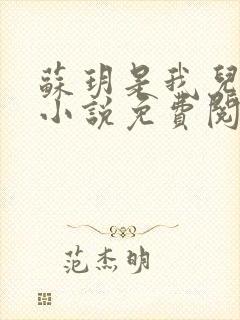 蘇玥是我兒
小說免費閱
范杰明